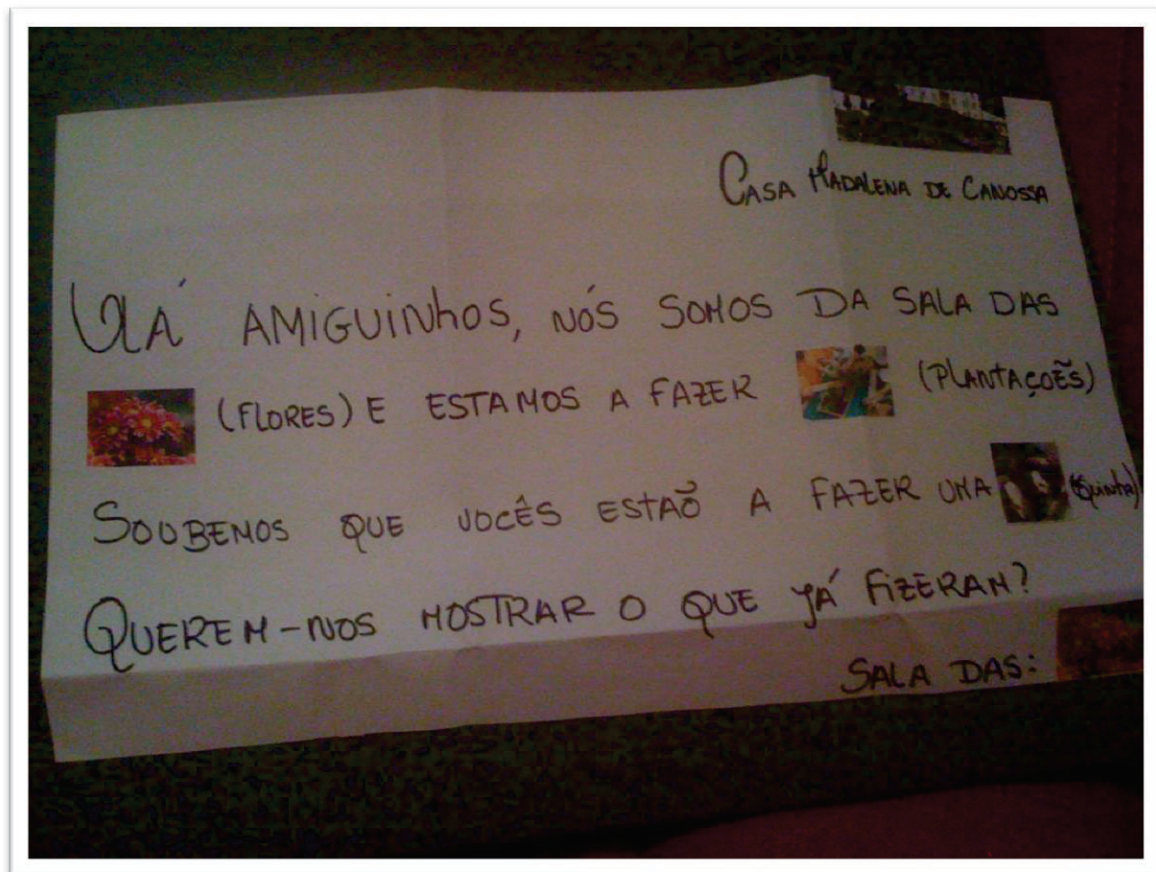 CASA MADALENA DE CANOSSA
OLÁ AMIGUINHOS, NÓS SOMOS DA SALA DAS
(FLORES) E ESTAMOS A FAZER (PLANTAÇOẼS)
SOUBEMOS QUE VOCÊS ESTAÕ A FAZER UMA (Quinta)
QUEREM-NOS MOSTRAR O QUE JÁ FIZERAM?
SALA DAS: